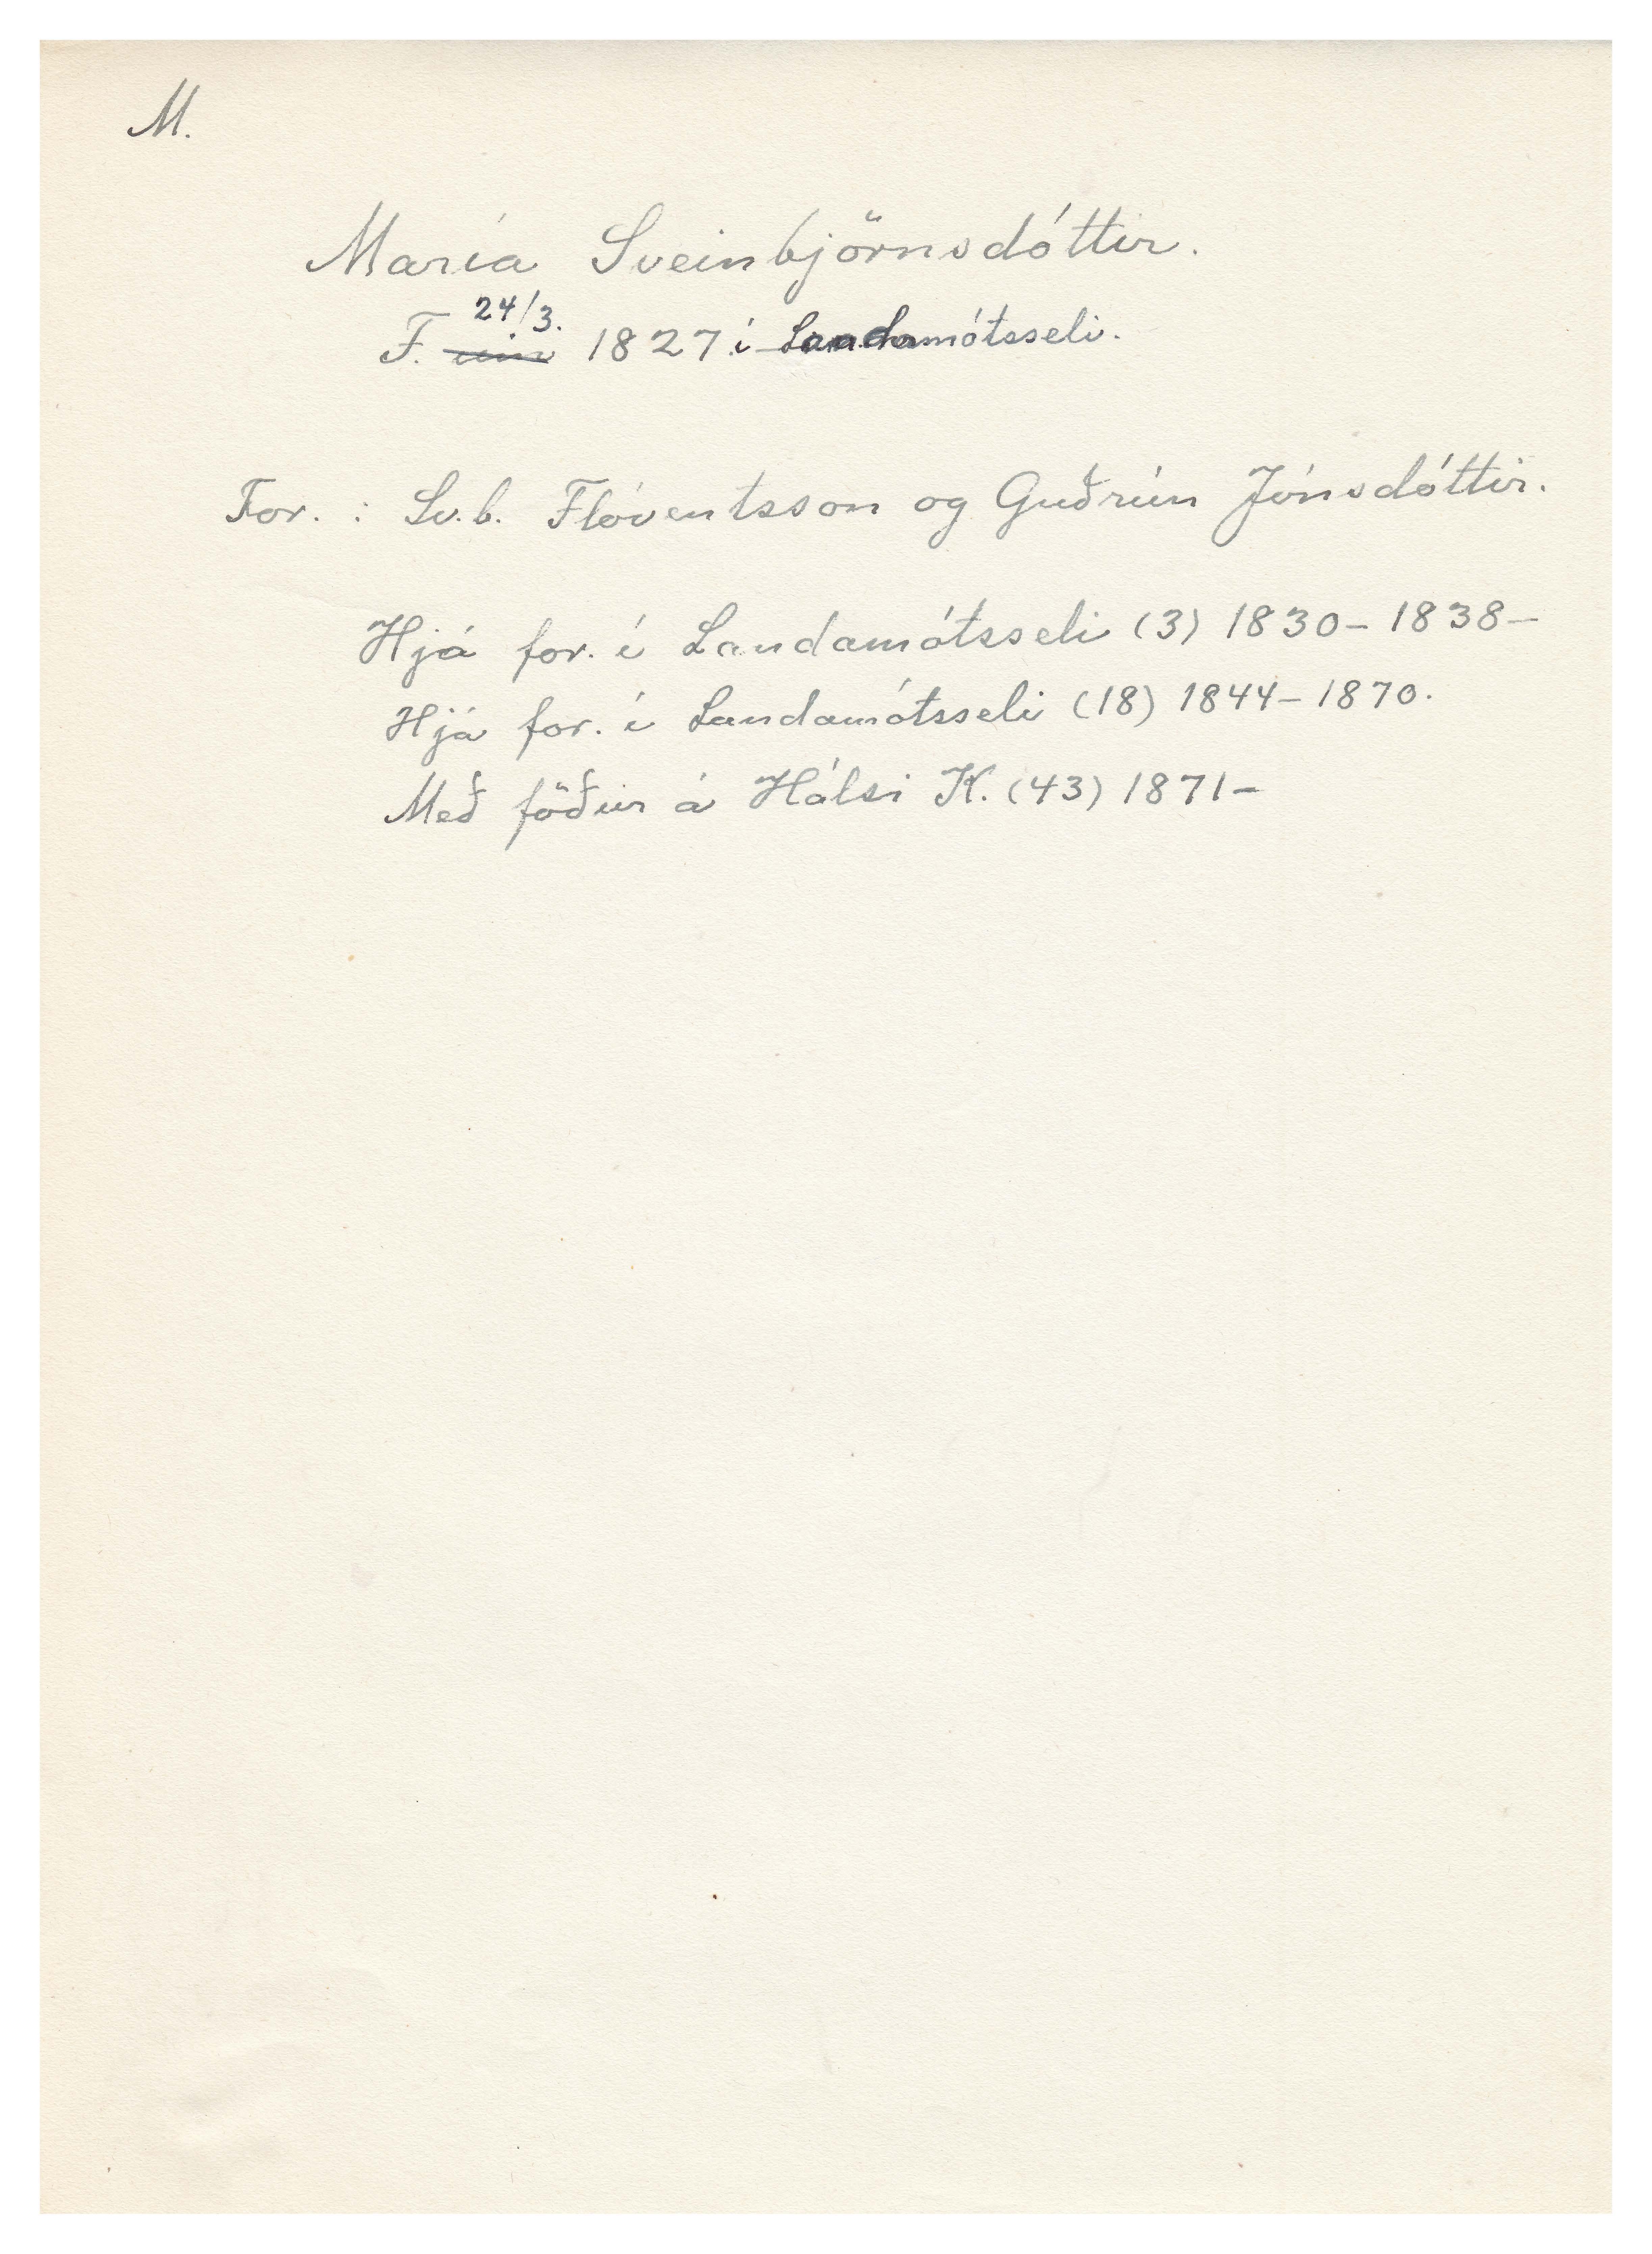 M.
María Sveinbjörnsdóttir.
24/3.
F. um 1827 í Landamótsseli.
For. : Sv.b. Flóventsson og Guðrún Jónsdóttir.
Hjá for. í Landamótsseli (3) 1830 - 1838 -
Hjá for. í Landamótsseli (18) 1844 - 1870.
Með föður á Hálsi K. (43) 1871 -